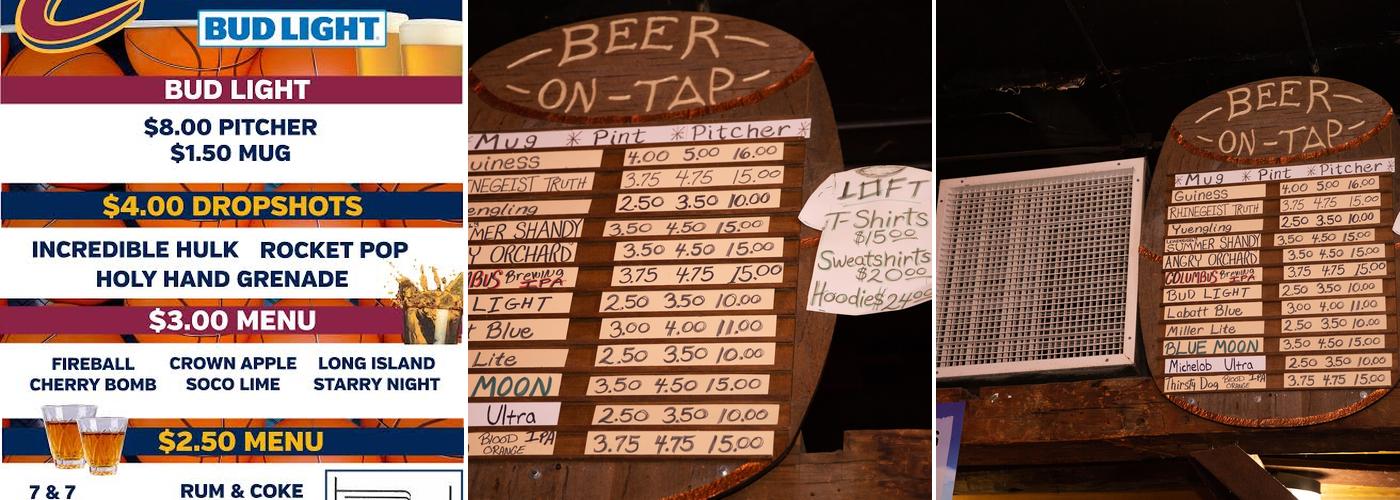 BUD LIGHT
BUD LIGHT
$8.00 PITCHER
$1.50 MUG
$4.00 DROPSHOTS
INCREDIBLE HULK ROCKET POP
HOLY HAND GRENADE
$3.00 MENU
FIREBALL CROWN APPLE LONG ISLAND
CHERRY BOMB SOCO LIME STARRY NIGHT
$2.50 MENU
7 & 7 RUM & COKE
BEER
ON-TAP
Mug * Pint * Pitcher *
uiness 4.00 5.00 16.00
HINEGEIST TRUTH 3.75 4.75 15.00
engling 2.50 3.50 10.00
MER SHANDY 3.50 4.50 15.00
Y ORCHARD 3.50 4.50 15.00
MBUS Brewing IPA 3.75 4.75 15.00
LIGHT 2.50 3.50 10.00
t Blue 3.00 4.00 11.00
Lite 2.50 3.50 10.00
MOON 3.50 4.50 15.00
Ultra 2.50 3.50 10.00
BLOOD ORANGE IPA 3.75 4.75 15.00
LOFT
T-Shirts
$15.00
Sweatshirts
$20.00
Hoodie $24.00
BEER
ON-TAP
*Mug * Pint *Pitcher*
Guiness 4.00 5.00 16.00
RHINEGEIST TRUTH 3.75 4.75 15.00
Yuengling 2.50 3.50 10.00
SUMMER SHANDY 3.50 4.50 15.00
ANGRY ORCHARD 3.50 4.50 15.00
COLUMBUS Brewing IPA 3.75 4.75 15.00
BUD LIGHT 2.50 3.50 10.00
Labatt Blue 3.00 4.00 11.00
Miller Lite 2.50 3.50 10.00
BLUE MOON 3.50 4.50 15.00
Michelob Ultra 2.50 3.50 10.00
Thirsty Dog BLOOD ORANGE IPA 3.75 4.75 15.00